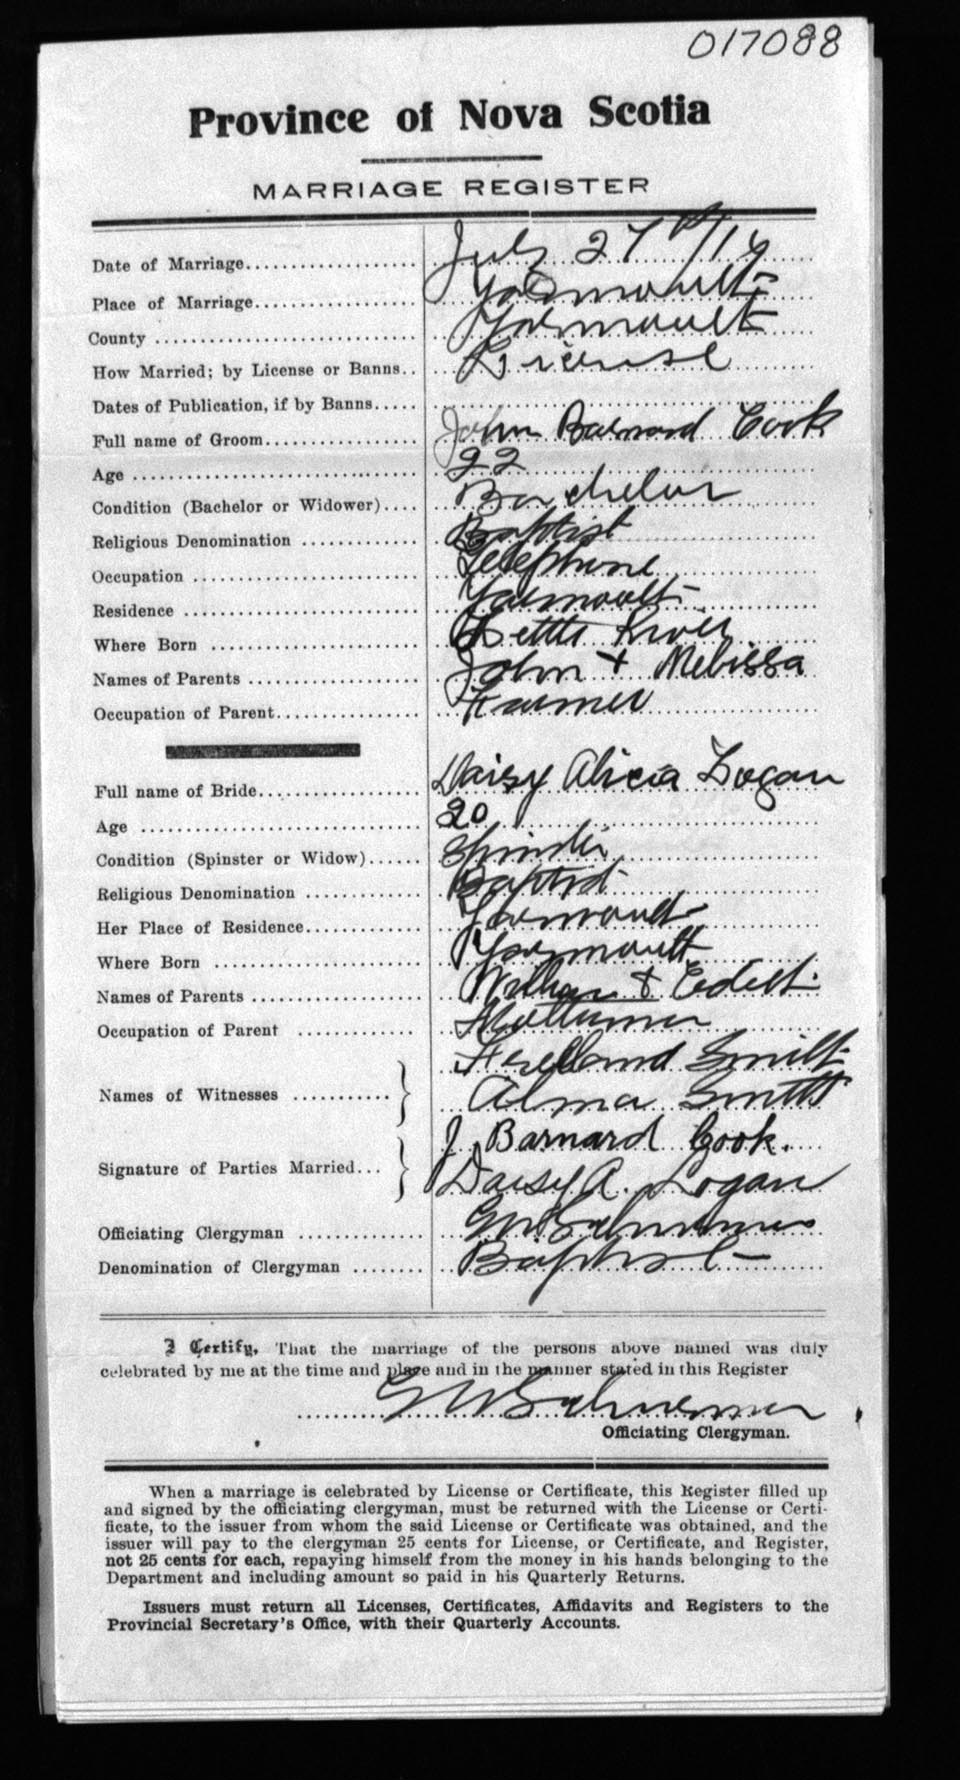 017088
Province of Nova Scotia
MARRIAGE REGISTER
Date of Marriage July 27th/16
Place of Marriage Yarmouth
County Yarmouth
How Married; by License or Banns License
Dates of Publication, if by Banns
Full name of Groom John Barnard Cook
Age 22
Condition (Bachelor or Widower) Bachelor
Religious Denomination Baptist
Occupation Telephone
Residence Yarmouth
Where Born Little River
Names of Parents John + Melissa
Occupation of Parent Farmer
Full name of Bride Daisy Alicia Logan
Age 20
Condition (Spinster or Widow) Spinster
Religious Denomination Baptist
Her Place of Residence Yarmouth
Where Born Yarmouth
Names of Parents William + Edith
Occupation of Parent
Names of Witnesses Smith
Alma Smith
Signature of Parties Married J. Barnard Cook.
Daisy A. Logan
Officiating Clergyman
Denomination of Clergyman Baptist
I Certify, That the marriage of the persons above named was duly
celebrated by me at the time and place and in the manner stated in this Register
Officiating Clergyman.
When a marriage is celebrated by License or Certificate, this Register filled up
and signed by the officiating clergyman, must be returned with the License or Certi-
ficate, to the issuer from whom the said License or Certificate was obtained, and the
issuer will pay to the clergyman 25 cents for License, or Certificate, and Register,
not 25 cents for each, repaying himself from the money in his hands belonging to the
Department and including amount so paid in his Quarterly Returns.
Issuers must return all Licenses, Certificates, Affidavits and Registers to the
Provincial Secretary's Office, with their Quarterly Accounts.